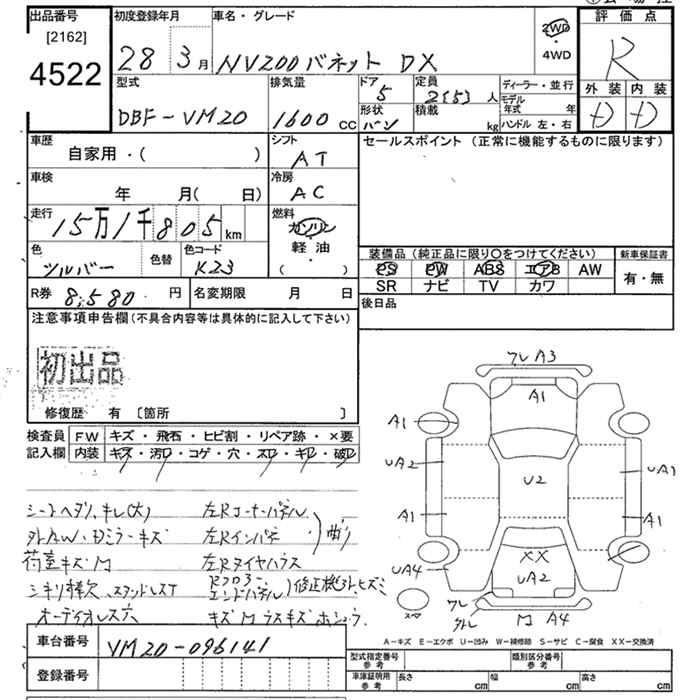 出品番号
[2162]
4522
初度登録年月
28 3月
車名・グレード
NV200バネット DX
2WD
・
4WD
評価点
R
外装 内装
D D
型式
DBF-VM20
排気量
1600 CC
ドア
5
形状
バン
定員
2(5) 人
積載
kg
ディーラー・並行
モデル年式 年
ハンドル 左・右
車歴
自家用・( )
シフト
AT
車検
年 月( 日)
冷房
AC
走行
15万1千805km
燃料
ガソリン
軽油
( )
色
シルバー
色替
色コード
K23
R券 8,580 円
名変期限 月 日
セールスポイント (正常に機能するものに限ります)
装備品 (純正品に限り○をつけてください)
新車保証書
PS PW ABS エアB AW
SR ナビ TV カワ
有・無
後日品
注意事項申告欄 (不具合内容等は具体的に記入して下さい)
初出品
修復歴 有 [箇所 ]
検査員記入欄
FW キズ・飛石・ヒビ割・リペア跡・×要
内装 キズ・汚レ・コゲ・穴・スレ・キレ・破レ
シートヘタリ、キレ(大) 左Rコーナーパネル
外AW、Dミラーキズ 左Rインパネ
荷室キズ凹 左Rタイヤハウス
曲リ
シキリ棒欠、スタッドレスT
Rフロアー
エンドパネル
修正機外、ヒズミ
オーディオレス穴
フレ A3
A1
A1
UA2
A1
UA4
U2
UA1
A1
XX
UA2
フレ
外レ
凹 A4
スペア
A-キズ E-エクボ U-凹み W-補修跡 S-サビ C-腐食 XX-交換済
車台番号 VM20-096141
登録番号
型式指定番号
参考
類別区分番号
参考
車庫証明用
参考
長さ cm
幅 cm
高さ cm